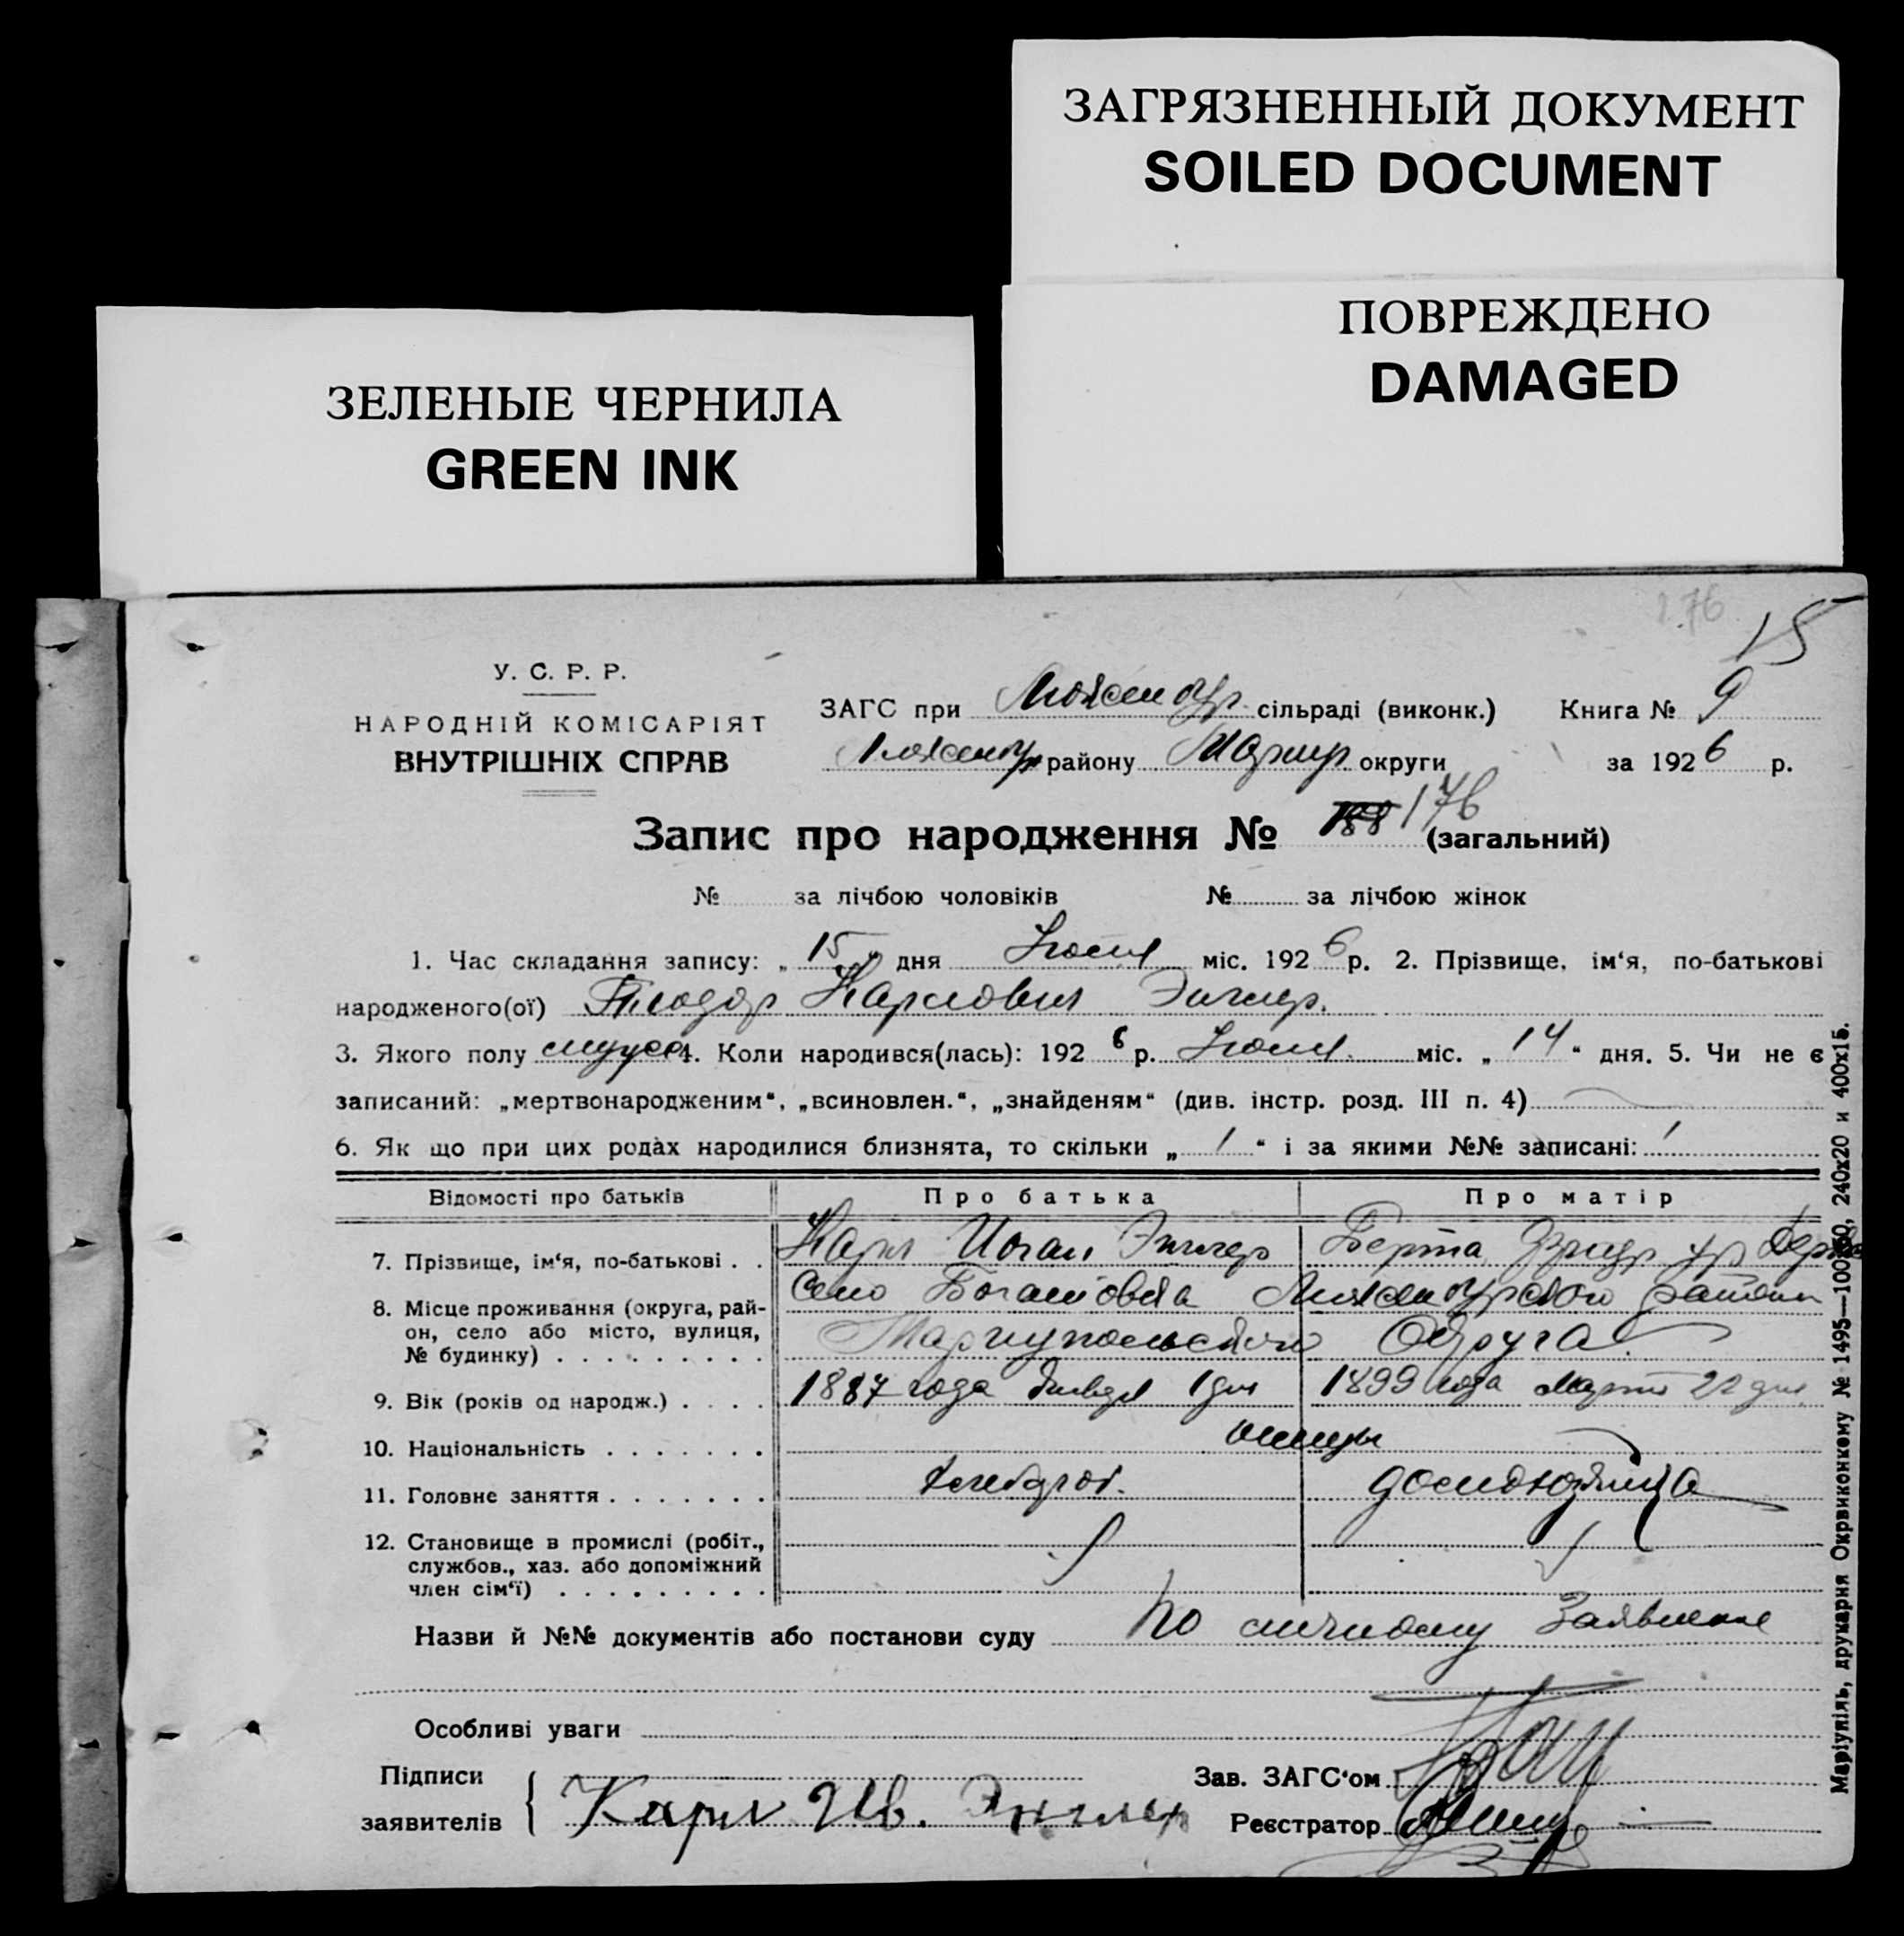 ЗАГРЯЗНЕННЫЙ ДОКУМЕНТ
SOILED DOCUMENT
ПОВРЕЖДЕНО
DAMAGED
ЗЕЛЕНЫЕ ЧЕРНИЛА
GREEN INK
176
15
У. С. Р. Р.
НАРОДНІЙ КОМІСАРІЯТ
ВНУТРІШНІХ СПРАВ
ЗАГС при Люксембур. сільраді (виконк.) Книга № 9
Люксембур району Мариуп. округи за 1926 р.
Запис про народження № 188 176 (загальний)
№ за лічбою чоловіків № за лічбою жінок
1. Час складання запису: „15“ дня Июля міс. 1926 р. 2. Прізвище, ім‘я, по-батькові
народженого(ої) Теодор Карлович Энглер.
3. Якого полу мужс 4. Коли народився(лась): 1926 р. Июля. міс. „14“ дня. 5. Чи не є
записаний: „мертвонародженим“, „всиновлен.“, „знайденям“ (див. інстр. розд. III п. 4)
6. Як що при цих родах народилися близнята, то скільки „1“ і за якими №№ записані: 1
Відомості про батьків Про батька Про матір
7. Прізвище, ім‘я, по-батькові . . Карл Иоган Энглер Берта
8. Місце проживання (округа, рай- Село Богатовка Люксембурского района
он, село або місто, вулиця,
№ будинку) . . . . . . . . . Мариупольского Округа
9. Вік (років од народж.) . . . . 1887 года 1 дня 1899 года Марта 22 дня
10. Національність . . . . . . . немцы
11. Головне заняття . . . . . . . хлебороб. домохозяйка
12. Становище в промислі (робіт.,
службов., хаз. або допоміжний
член сім‘ї) . . . . . . . . .
Назви й №№ документів або постанови суду По личному Заявлению
Особливі уваги
Підписи
заявителів { Карл Ив. Энглер
Зав. ЗАГС‘ом
Реєстратор
Маріупіль, друкарня Окрвиконкому № 1495—10000, 240х20 и 400х15.